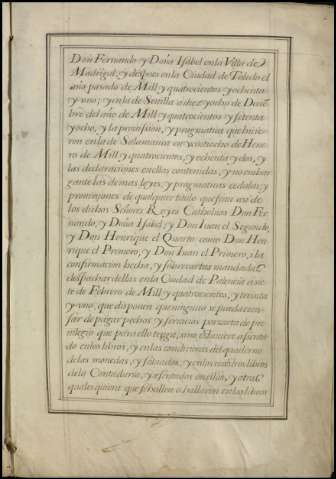 Don Fernando, y Doña Isabel en la Villa de
Madrigal; y despues en la Ciudad de Toledo el
año pasado de Mill y quatrocientos y ochenta
y uno; y en la de Sevilla a diez y ocho de Diziem
bre del año de Mill y quatrocientos y setenta
y ocho, y la provision, y pragmatica que hicie
ron en la de Salamanca en veintiocho de Hene
ro de Mill y quatrocientos, y ochenta y dos, y
las declaraciones en ellas contenidas, y no embar
gante las demas leyes, y pragmaticas cedulas, y
provisiones de qualquier titulo que fuese asi de
los dichos Señores Reyes Catholicos Don Fer
nando, y Doña Isabel, y Don Iuan el Segundo,
y Don Henrique el Quarto como Don Hen
rique el Primero, y Don Iuan el Primero, y la
confirmacion hecha, y sobre cartas mandadas
despachar dellas en la Ciudad de Palencia a sie
te de Febrero de Mill y quatrocientos, y treinta
y uno, que disponen que ninguno se pueda escu
sar de pagar pechos y servicios por carta de pre
vilegio que para ello tenga, si no estuviere asenta
do en los libros, y en las condiciones del quaderno
de las monedas, y salvados, y en los nuestros libros
de la Contaduria, y otras
qualesquiera que se hallen o hallaren en los libros